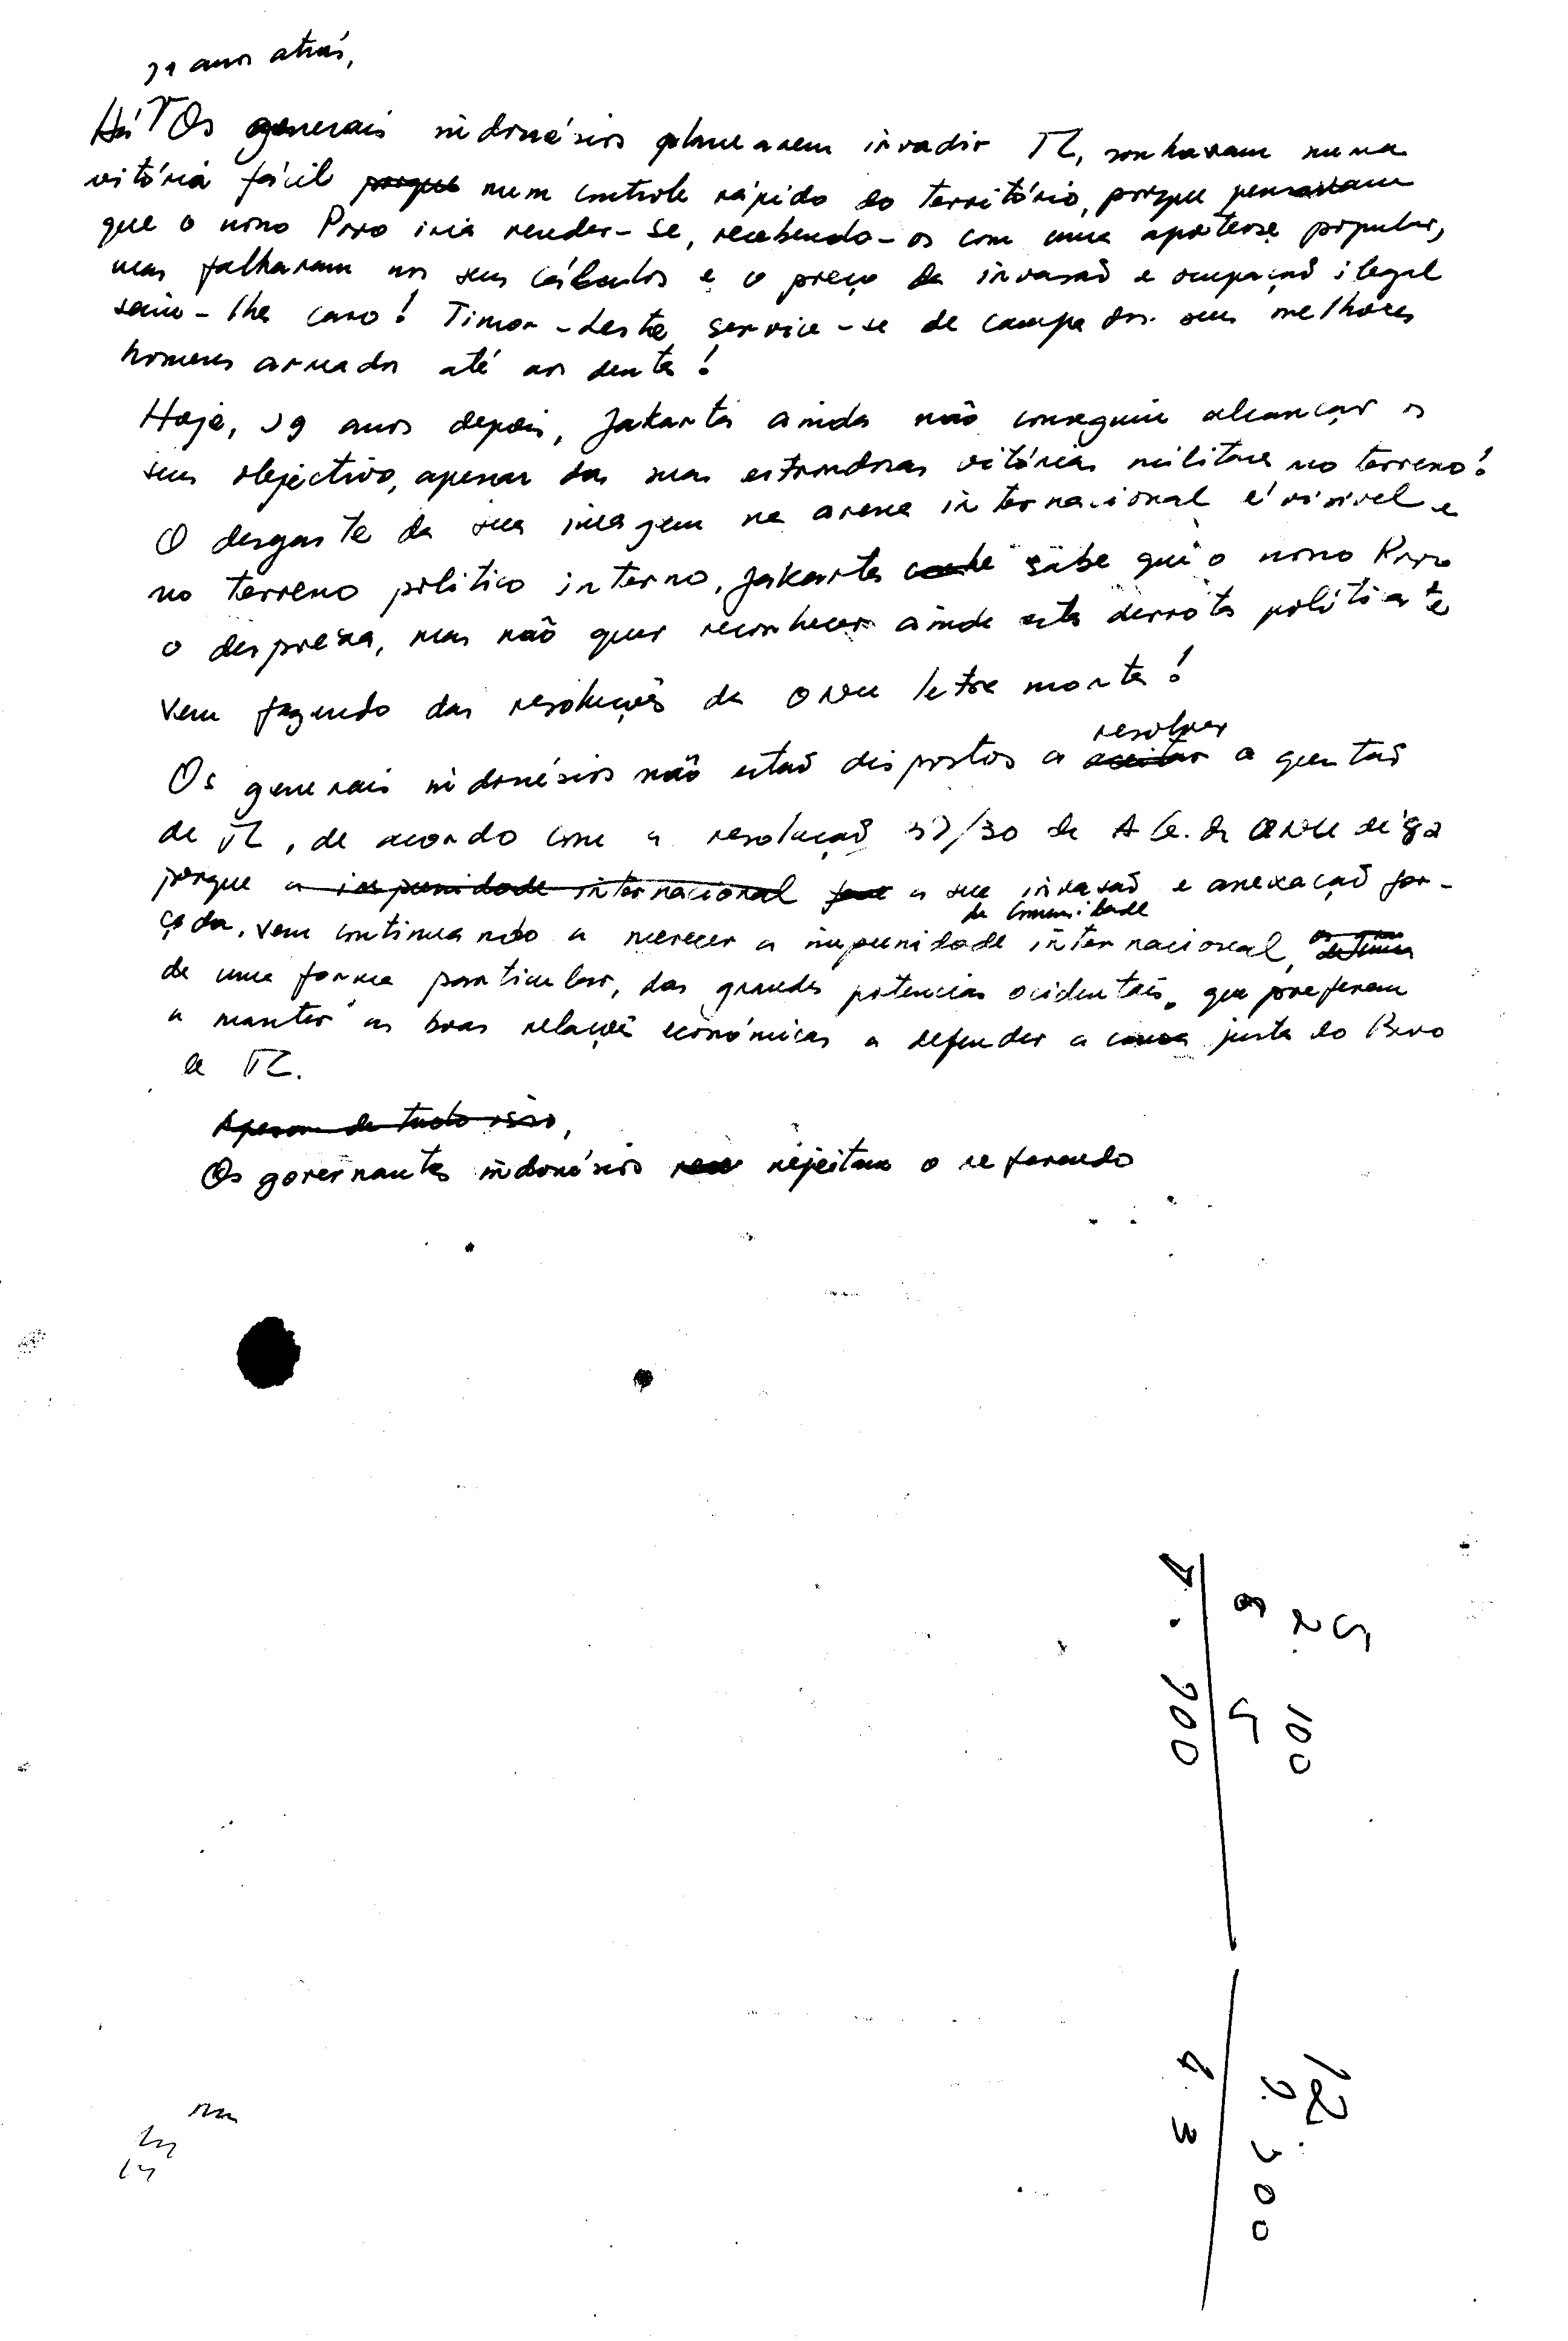 anos atrás,
Há Os generais indonésios planearem invadir TL, sonhavam numa
vitória fácil porque num controle rápido do território, porque pensavam
que o nosso Povo iria render-se, recebendo-os com uma apoteose popular,
mas falharam nos seus cálculos e o preço da invasão e ocupação ilegal
saiu-lhes caro! Timor-Leste, service-se de campa dos seus melhores
homens armados até aos dentes!
Hoje, 19 anos depois, Jakarta ainda não conseguiu alcançar os
seus objectivos, apesar das suas estrondosas vitórias militares no terreno!
O desgaste da sua imagem na arena internacional é visível e
no terreno político interno, Jakarta sabe que o nosso Povo
o despreza, mas não quer reconhecer ainda esta derrota política e
vem fazendo das resoluções da ONU letra morta!
resolver
Os generais indonésios não estão dispostos a aceitar a questão
de TL, de acordo com a resolução 37/30 da A.G. da ONU de 82
porque a impunidade internacional a sua invasão e anexação for-
da Comunidade
çada, vem continuando a merecer a impunidade internacional,
de uma forma particular, das grandes potencias ocidentais, que preferem
a manter as boas relações económicas a defender a causa justa do Povo
de TL.
Apesar de tudo isso,
Os governantes indonésios rejeitam o referendo
25
2.100
8 5
4.900
12.
9.300
4.3